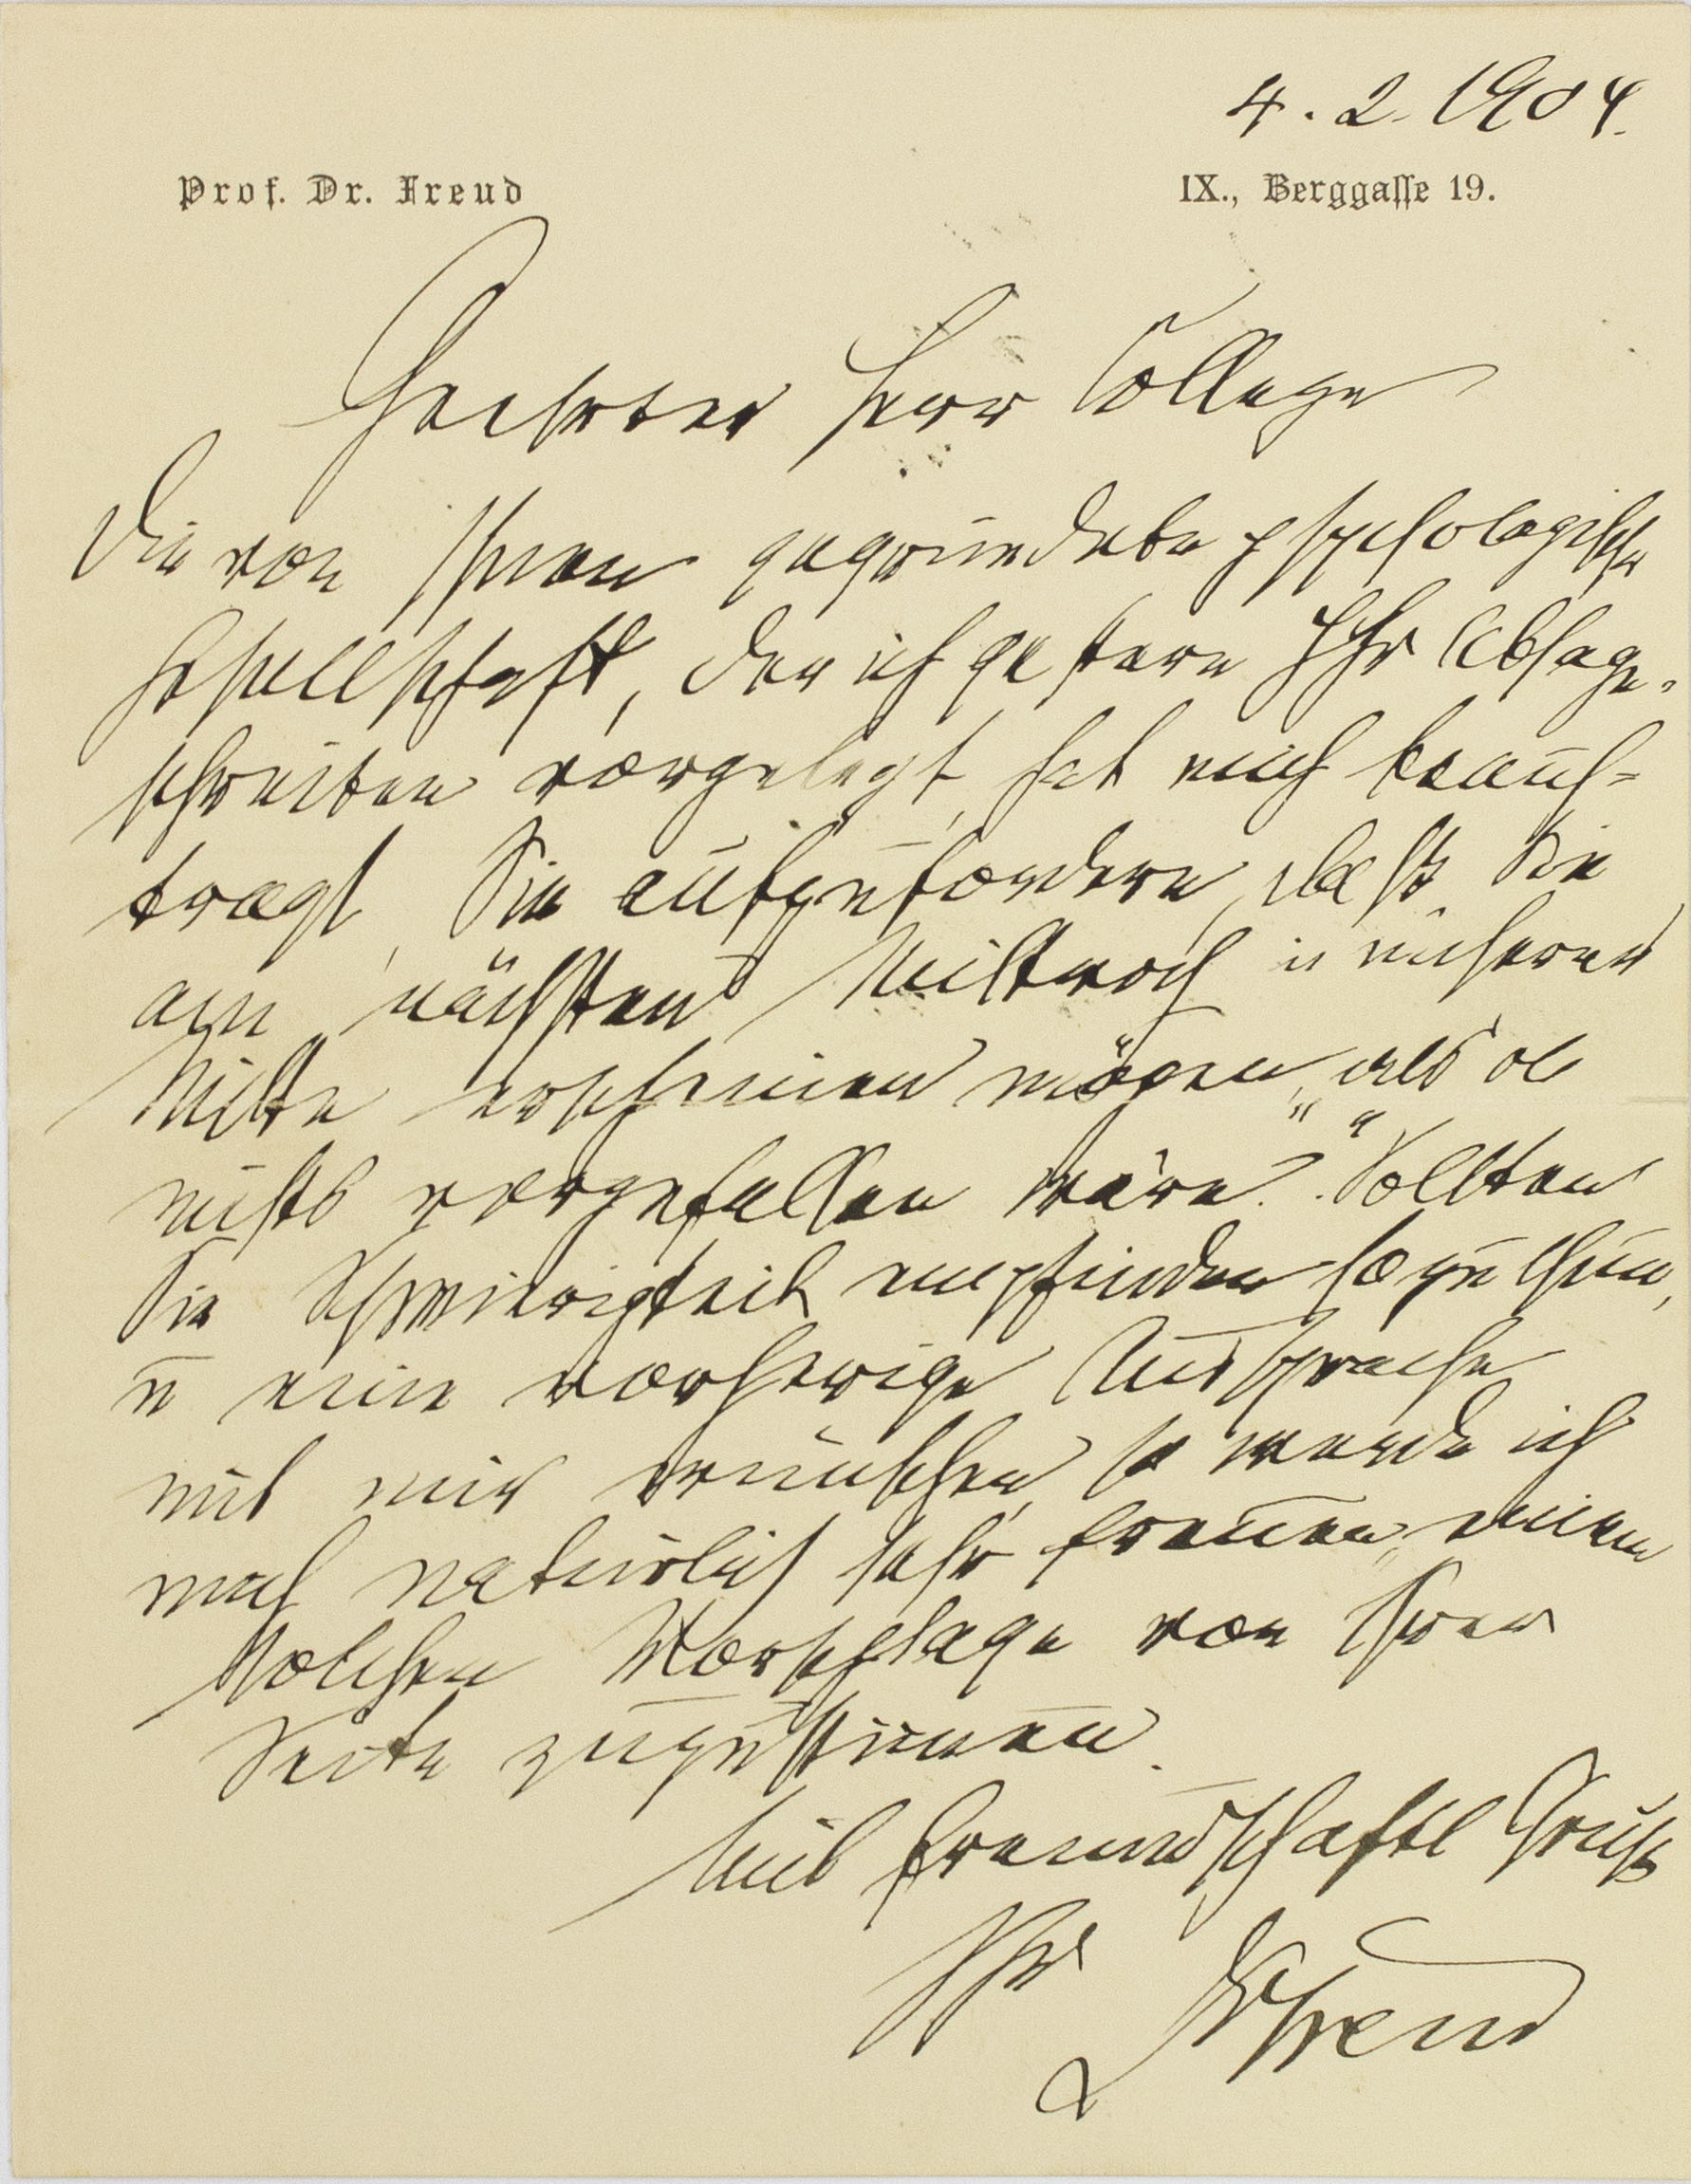 4. 2. 1904.
Prof. Dr. Freud IX., Berggasse 19.
Geehrter Herr College
Die von Ihnen gegründete psychologische
Gesellschaft, der ich gestern Ihr Absage-
schreiben vorgelegt, hat mich beauf-
tragt, Sie aufzufordern, daß Sie
am nächsten Mittwoch in unserer
Mitte erscheinen mögen, „als ob
nichts vorgefallen wäre“. Sollten
Sie Schwierigkeit empfinden so zu thun,
u eine vorherige Aussprache
mit mir wünschen, so werde ich
mich natürlich sehr freuen, einem
solchen Vorschlage von Ihrer
Seite zuzustimmen.
Mit freundschaftl Gruß
Ihr Dr Freud